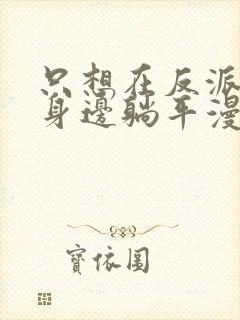 只想在反派
身邊躺平漫
寶依圓